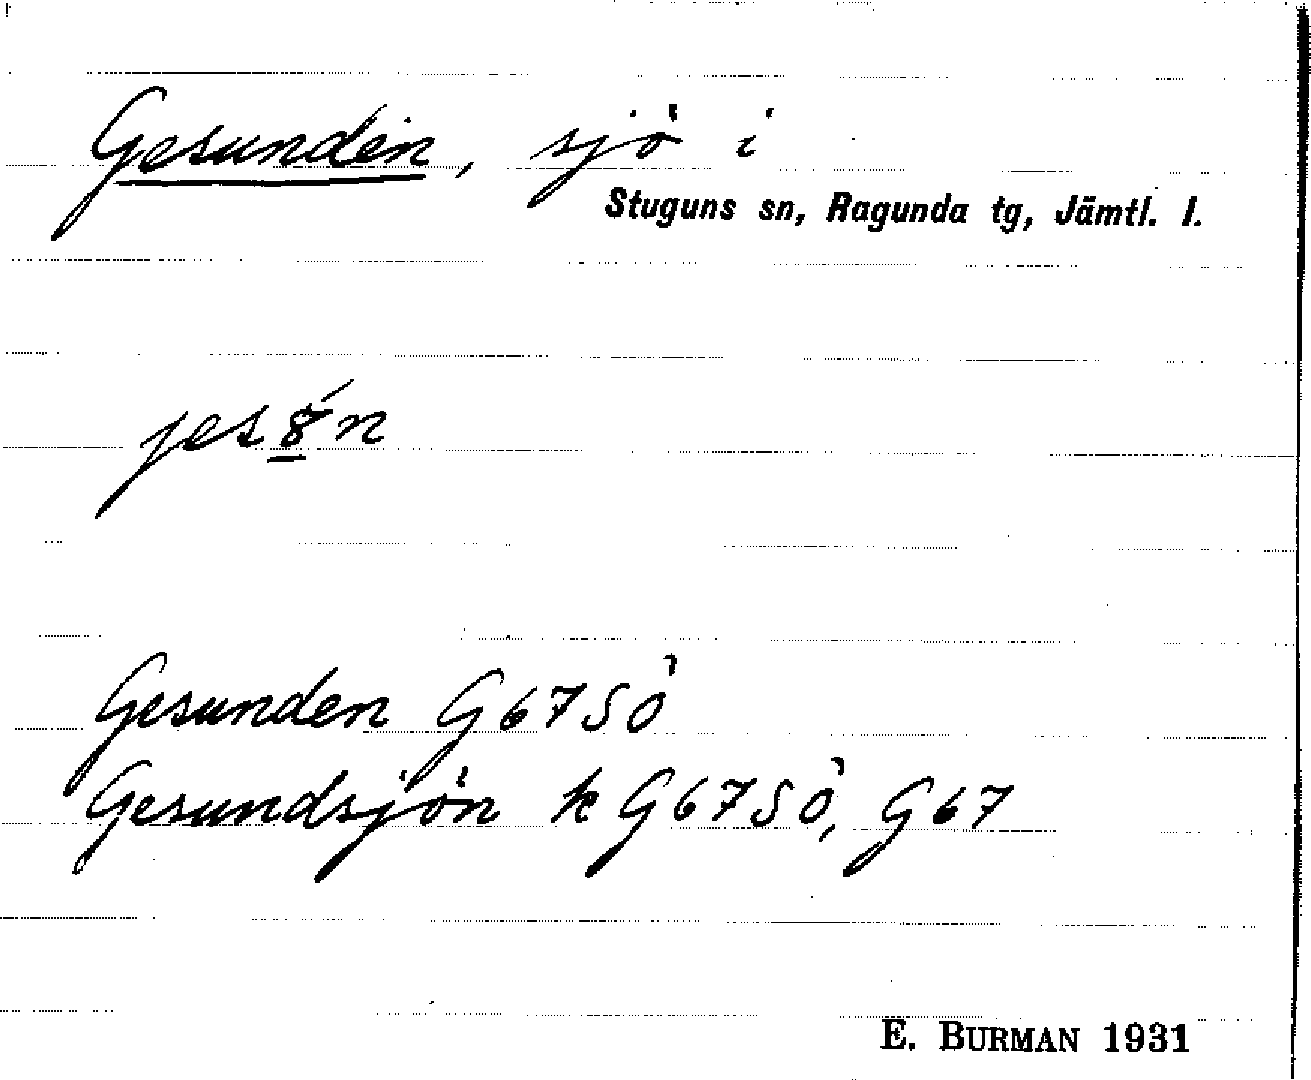 Gesunden, sjö i
Stuguns sn, Ragunda tg, Jämtl. l.
Gesunden G67SÖ
Gesundsjön k G67SÖ, G67
E. BURMAN 1931